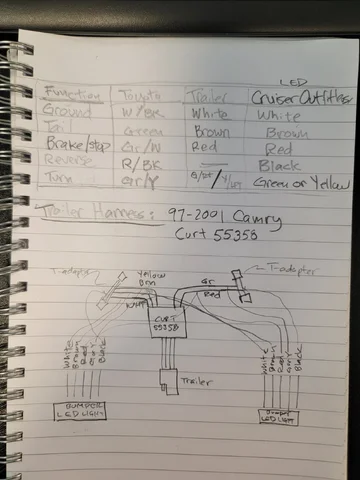 LED
Function Toyota Trailer Cruiser Outfitters
Ground W/BK White White
Tail Green Brown Brown
Brake/stop Gr/W Red Red
Reverse R/BK — Black
Turn Gr/Y Green or Yellow
Trailer Harness: 97-2001 Camry
Curt 55358
T-adapter Yellow Gr T-adapter
Brn Red
WHT
CURT
55358
White Brown Red Gr/Y Black
White Brown Red Gr/Y Black
Trailer
BUMPER
LED LIGHT
BUMPER
LED LIGHT